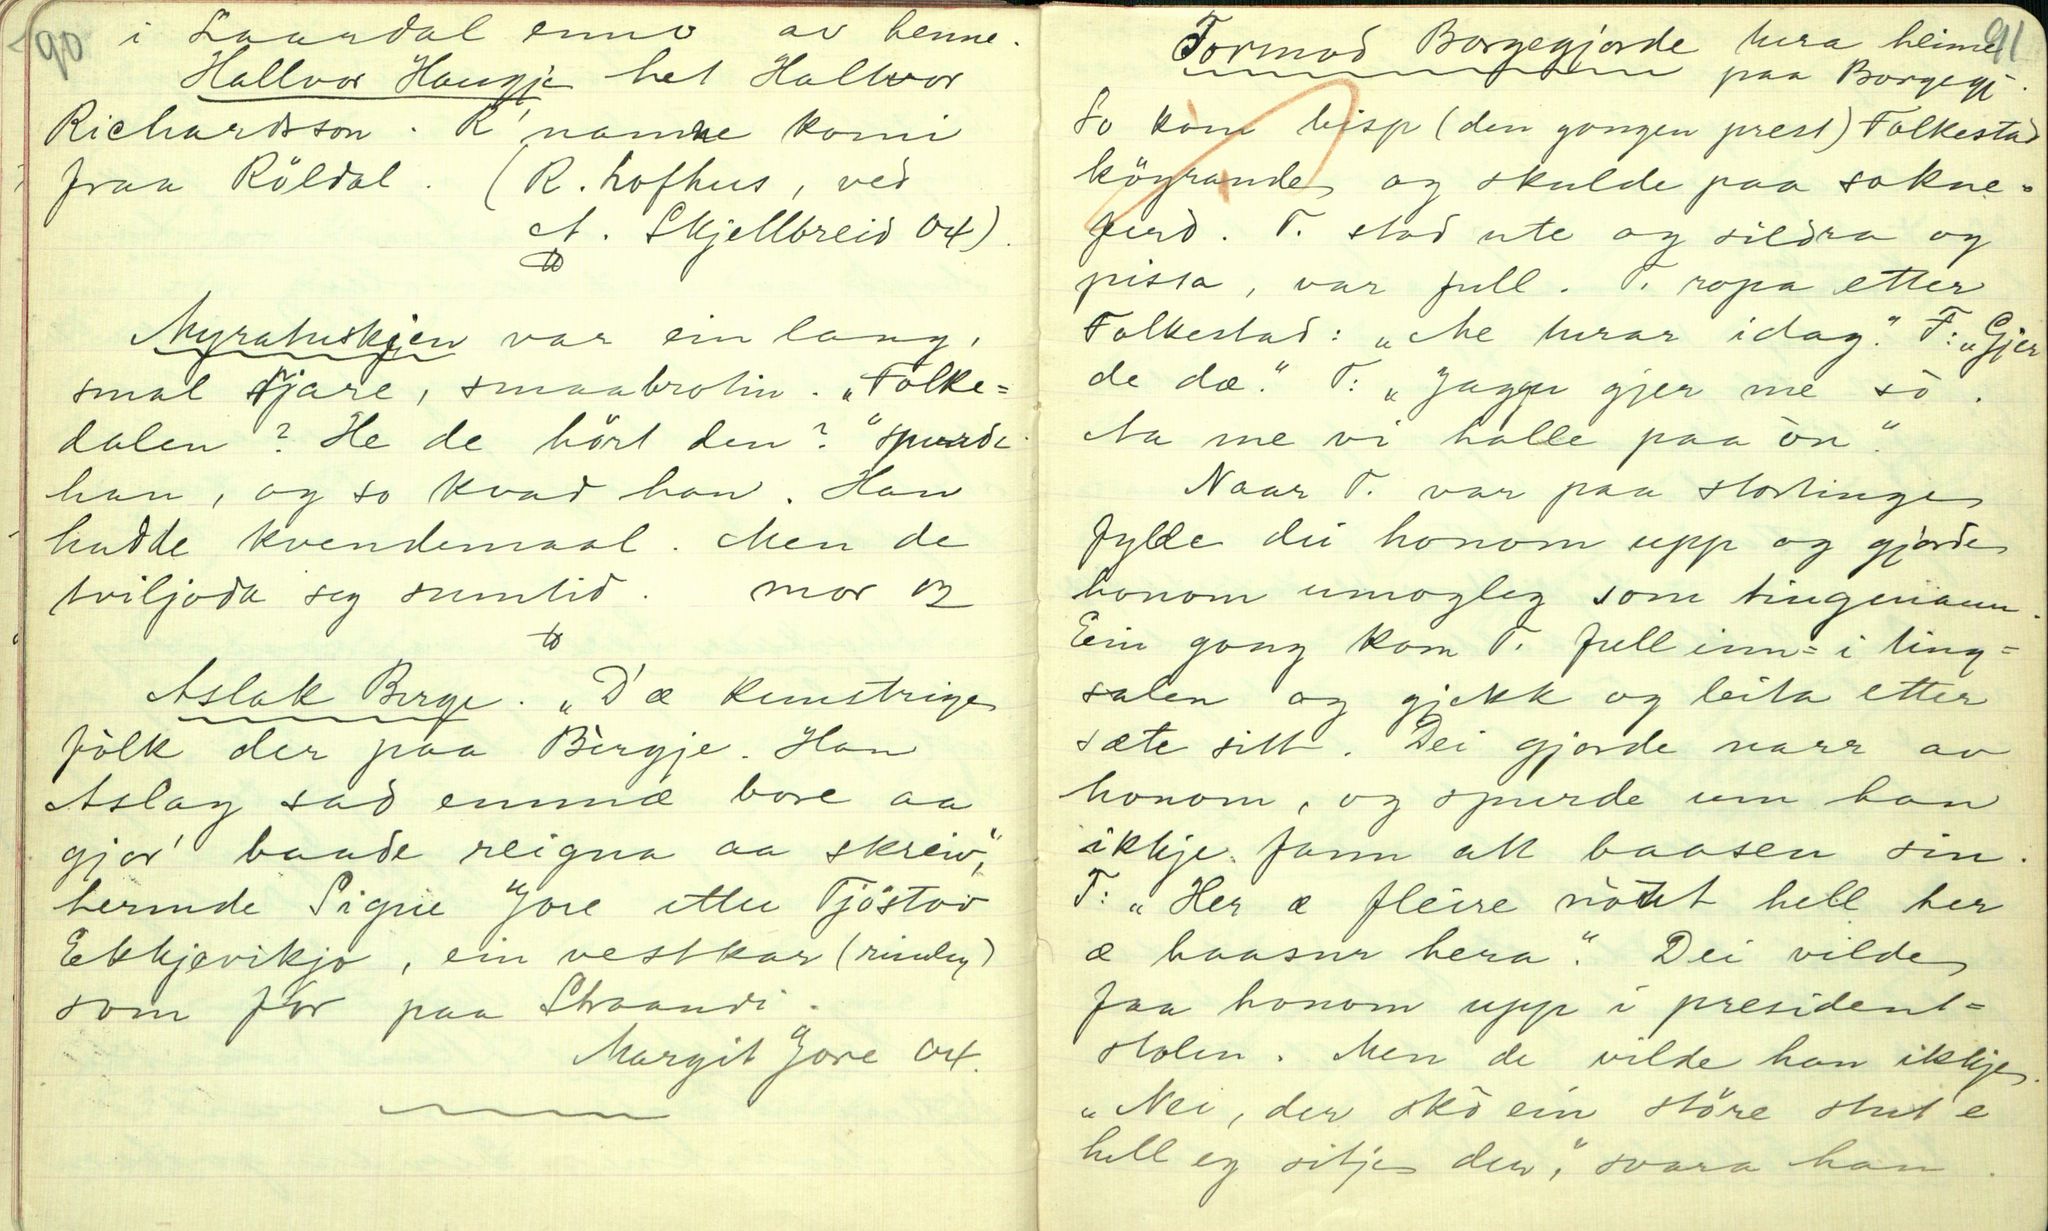 90
i Laardal enno av henne.
Hallvor Haugje het Hallvor
Richardsson. R' namne komi
fraa Röldal. (R. Lofthus, ved
A. Skjellbreid 04).
Myratuskjen var ein lang,
smal fjare, smaabrotin. „Folke=
dalen? He de hört den?" spurde
han, og so kvad han. Han
hadde kvendemaal. Men de
tviljoda seg sumtid. mor 03
Aslak Berge. „D'æ kunstrige
fölk der paa Bergje. Han
Aslag sad emnæ bore aa
gjor' baade reigna aa skreiv,"
hermde Signe Jore etter Tjöstov
Ekkjevikjo, ein vestkar (rindøl)
som for paa Straandi.
Margit Jore 04.
91
Tormod Borgegjorde tura heime
paa Borgegj.
So kom bisp (den gongen prest) Folkestad
köyrande og skulde paa sokne=
ferd. T. stod ute og sildra og
pissa, var full. T. ropa etter
Folkestad: „Me turar idag." F: „Gjer
de dæ." T: „Jaggu gjer me sò.
Aa me vi halle paa òn."
Naar T. var paa stortinge
fylde dei honom upp og gjorde
honom umogleg som tingmann.
Ein gong kom T. full inn= i ting=
salen og gjekk og leita etter
sæte sitt. Dei gjorde narr av
honom, og spurde um han
ikkje fann att baasen sin.
T: „Her æ fleire nòut hell her
æ baasur hera." Dei vilde
faa honom upp i president=
stolen. Men de vilde han ikkje.
„Nei, der skò ein störe stut e
hell eg sitje der," svara han.